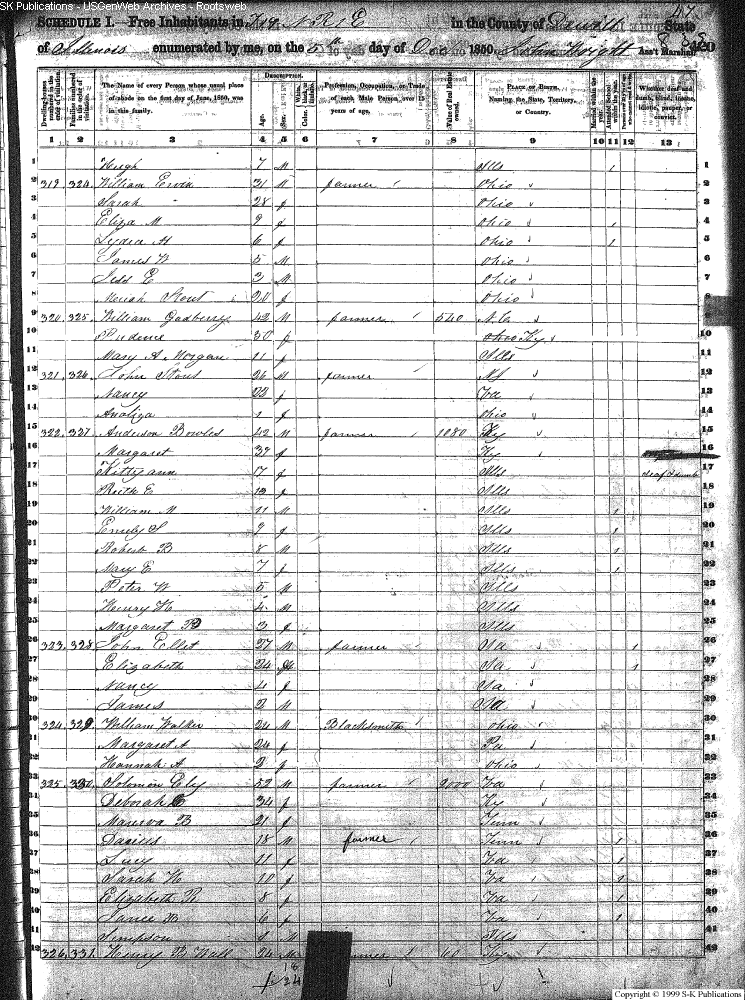 SK Publications - USGenWeb Archives - Rootsweb
SCHEDULE I.—Free Inhabitants in N R 1 E in the County of State
of Illinois enumerated by me, on the 5th day of Dec 1850. Wright Ass't Marshal.
Dwelling-houses numbered in the order of visitation. Families numbered in the order of visitation. The Name of every Person whose usual place of abode on the first day of June, 1850, was in this family. DESCRIPTION. Age. Sex. Color, White, black, or mulatto. Profession, Occupation, or Trade of each Male Person over 15 years of age. Value of Real Estate owned. PLACE OF BIRTH. Naming the State, Territory, or Country. Married within the year. Attended School within the year. Whether deaf and dumb, blind, insane, idiotic, pauper, or convict.
1 2 3 4 5 6 7 8 9 10 11 12 13
1 Hugh 7 M Ills 1 1
2 319 324 William Ervin 31 M farmer Ohio 2
3 Sarah 28 f Ohio 3
4 Eliza M 9 f Ohio 1 4
5 Lydia H 6 f Ohio 1 5
6 James W 5 M Ohio 6
7 E 3 M Ohio 7
8 Stout 20 f Ohio 8
9 320 325 William Gadberry 42 M farmer 540 N.C. 9
10 Prudence 30 f Ky 10
11 Mary A. Morgan 11 f Ills 11
12 321 326 John Stout 26 M farmer NJ 12
13 Nancy 23 f Va 13
14 Analiza 1 f Ohio 14
15 322 327 Anderson Bowles 42 M farmer 1080 Ky 15
16 Margaret 37 f Ky 16
17 Kittyann 17 f Ills deaf & dumb 17
18 E 13 f Ills 18
19 William M 11 M Ills 1 19
20 Emily S 9 f Ills 1 20
21 Robert B 8 M Ills 1 21
22 Mary E 7 f Ills 1 22
23 Peter W 5 M Ills 23
24 Henry H 4 M Ills 24
25 Margaret B 3 f Ills 25
26 323 328 John Ellet 27 M farmer Va 1 26
27 Elizabeth 24 f Va 1 27
28 Nancy 4 f Va 28
29 James 2 M Va 29
30 324 329 William Walker 24 M Blacksmith Ohio 30
31 Margaret A 24 f Pa 31
32 Hannah A 2 f Ohio 32
33 325 330 Solomon Ely 52 M farmer 2000 Va 33
34 Deborah E 34 f Ky 34
35 Manerva B 21 f Tenn 35
36 18 M farmer Tenn 1 36
37 Lucy 11 f Va 1 37
38 Sarah H 10 f Va 1 38
39 Elizabeth R 8 f Va 1 39
40 6 f Va 1 40
41 Simpson M Ills 41
42 326 331 Henry B Wall 24 M farmer 60 Ky 42
18
24
Copyright © 1999 S-K Publications